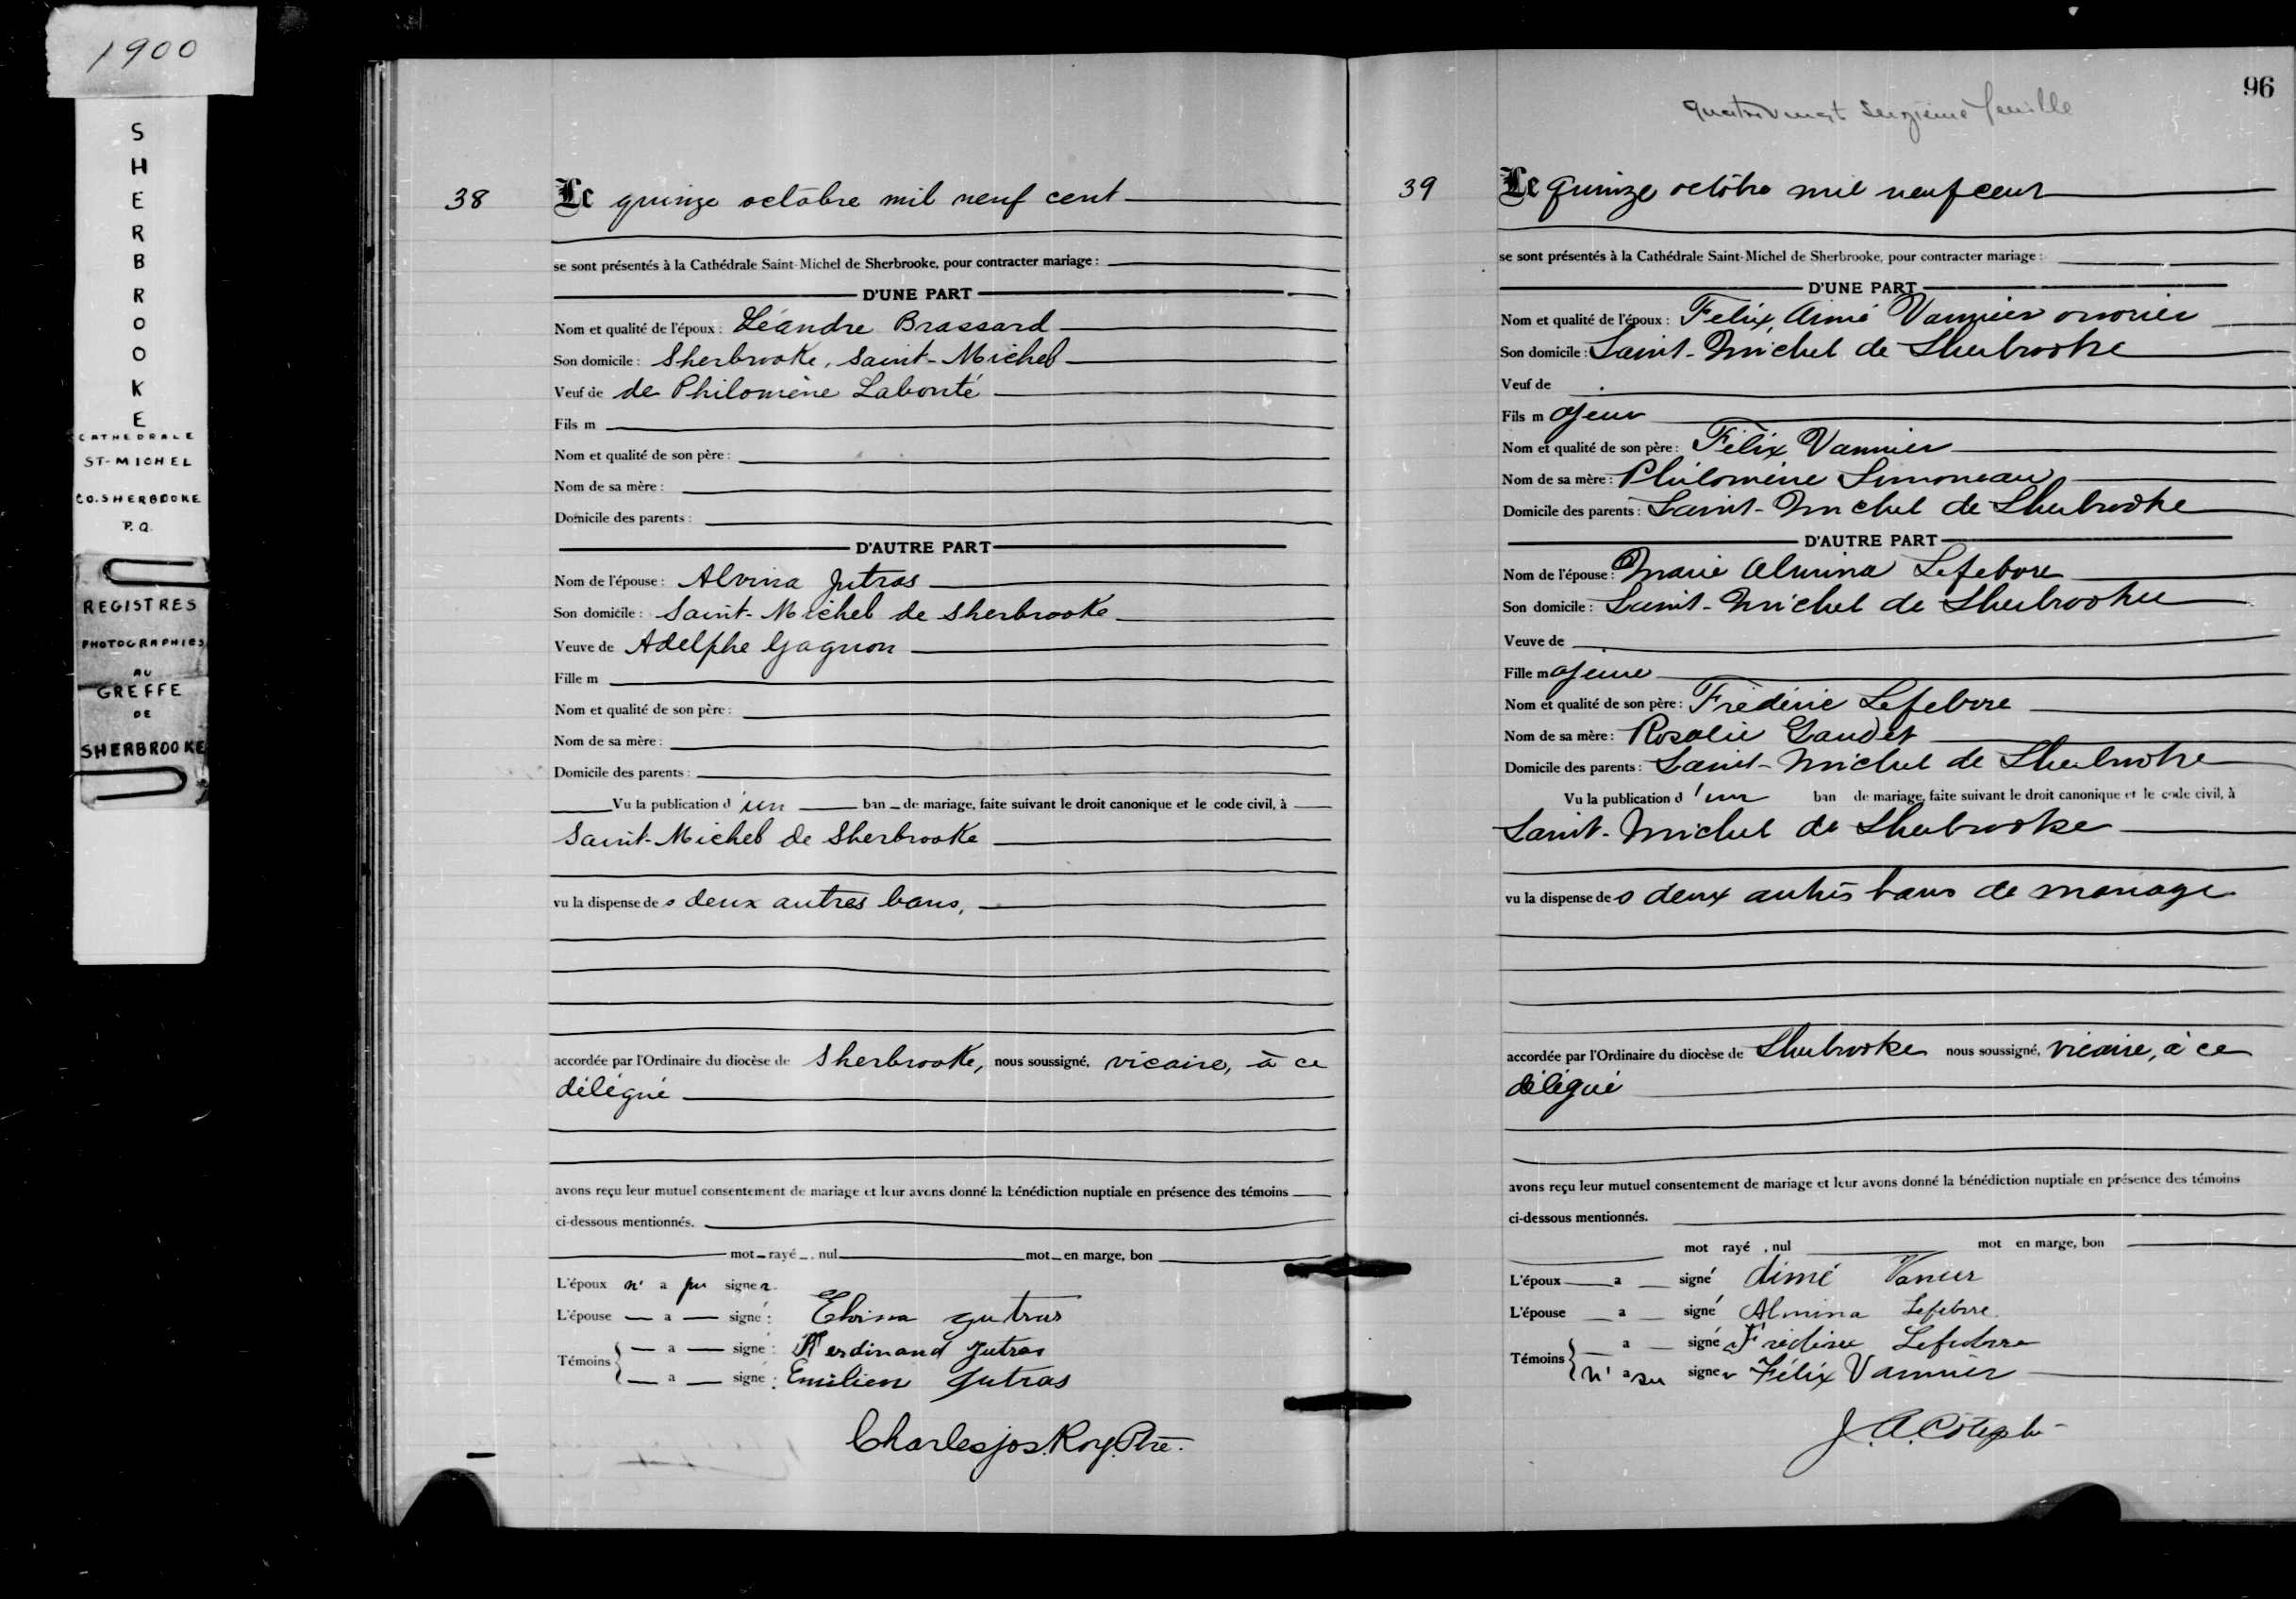 1900
S
H
E
R
B
R
O
O
K
E
CATHEDRALE
ST-MICHEL
CO. SHERBOOKE
P.Q.
REGISTRES
PHOTOGRAPHIES
AU
GREFFE
DE
SHERBROOKE
38
Le quinze octobre mil neuf cent
se sont présentés à la Cathédrale Saint-Michel de Sherbrooke, pour contracter mariage :
D'UNE PART
Nom et qualité de l'époux : Léandre Brassard
Son domicile : Sherbrooke, Saint-Michel
Veuf de de Philomène Labonté
Fils m
Nom et qualité de son père :
Nom de sa mère :
Domicile des parents :
D'AUTRE PART
Nom de l'épouse : Alvina Jutras
Son domicile : Saint-Michel de Sherbrooke
Veuve de Adelphe Gagnon
Fille m
Nom et qualité de son père :
Nom de sa mère :
Domicile des parents :
Vu la publication d'un ban de mariage, faite suivant le droit canonique et le code civil, à
Saint-Michel de Sherbrooke
vu la dispense des deux autres bans,
accordée par l'Ordinaire du diocèse de Sherbrooke, nous soussigné, vicaire, à ce
délégué
avons reçu leur mutuel consentement de mariage et leur avons donné la bénédiction nuptiale en présence des témoins
ci-dessous mentionnés.
mot rayé , nul mot en marge, bon
L'époux n'a pu signer.
L'épouse a signé : Elvina Jutras
Témoins a signé : Ferdinand Jutras
a signé : Emilien Jutras
Charles Jos. Roy, Ptre.
96
quatre vingt seizième feuille
39
Le quinze octobre mil neuf cent
se sont présentés à la Cathédrale Saint-Michel de Sherbrooke, pour contracter mariage :
D'UNE PART
Nom et qualité de l'époux : Félix Aimé Vannier ouvrier
Son domicile : Saint-Michel de Sherbrooke
Veuf de
Fils majeur
Nom et qualité de son père : Félix Vannier
Nom de sa mère : Philomène Simoneau
Domicile des parents : Saint-Michel de Sherbrooke
D'AUTRE PART
Nom de l'épouse : Marie Almina Lefebvre
Son domicile : Saint-Michel de Sherbrooke
Veuve de
Fille majeure
Nom et qualité de son père : Frédéric Lefebvre
Nom de sa mère : Rosalie Gaudet
Domicile des parents : Saint-Michel de Sherbrooke
Vu la publication d'un ban de mariage, faite suivant le droit canonique et le code civil, à
Saint-Michel de Sherbrooke
vu la dispense des deux autres bans de mariage
accordée par l'Ordinaire du diocèse de Sherbrooke nous soussigné, vicaire, à ce
délégué
avons reçu leur mutuel consentement de mariage et leur avons donné la bénédiction nuptiale en présence des témoins
ci-dessous mentionnés.
mot rayé , nul mot en marge, bon
L'époux a signé Aimé Vanier
L'épouse a signé Almina Lefebvre
Témoins a signé Frédéric Lefebvre
n'a su signer Félix Vannier
J. A.